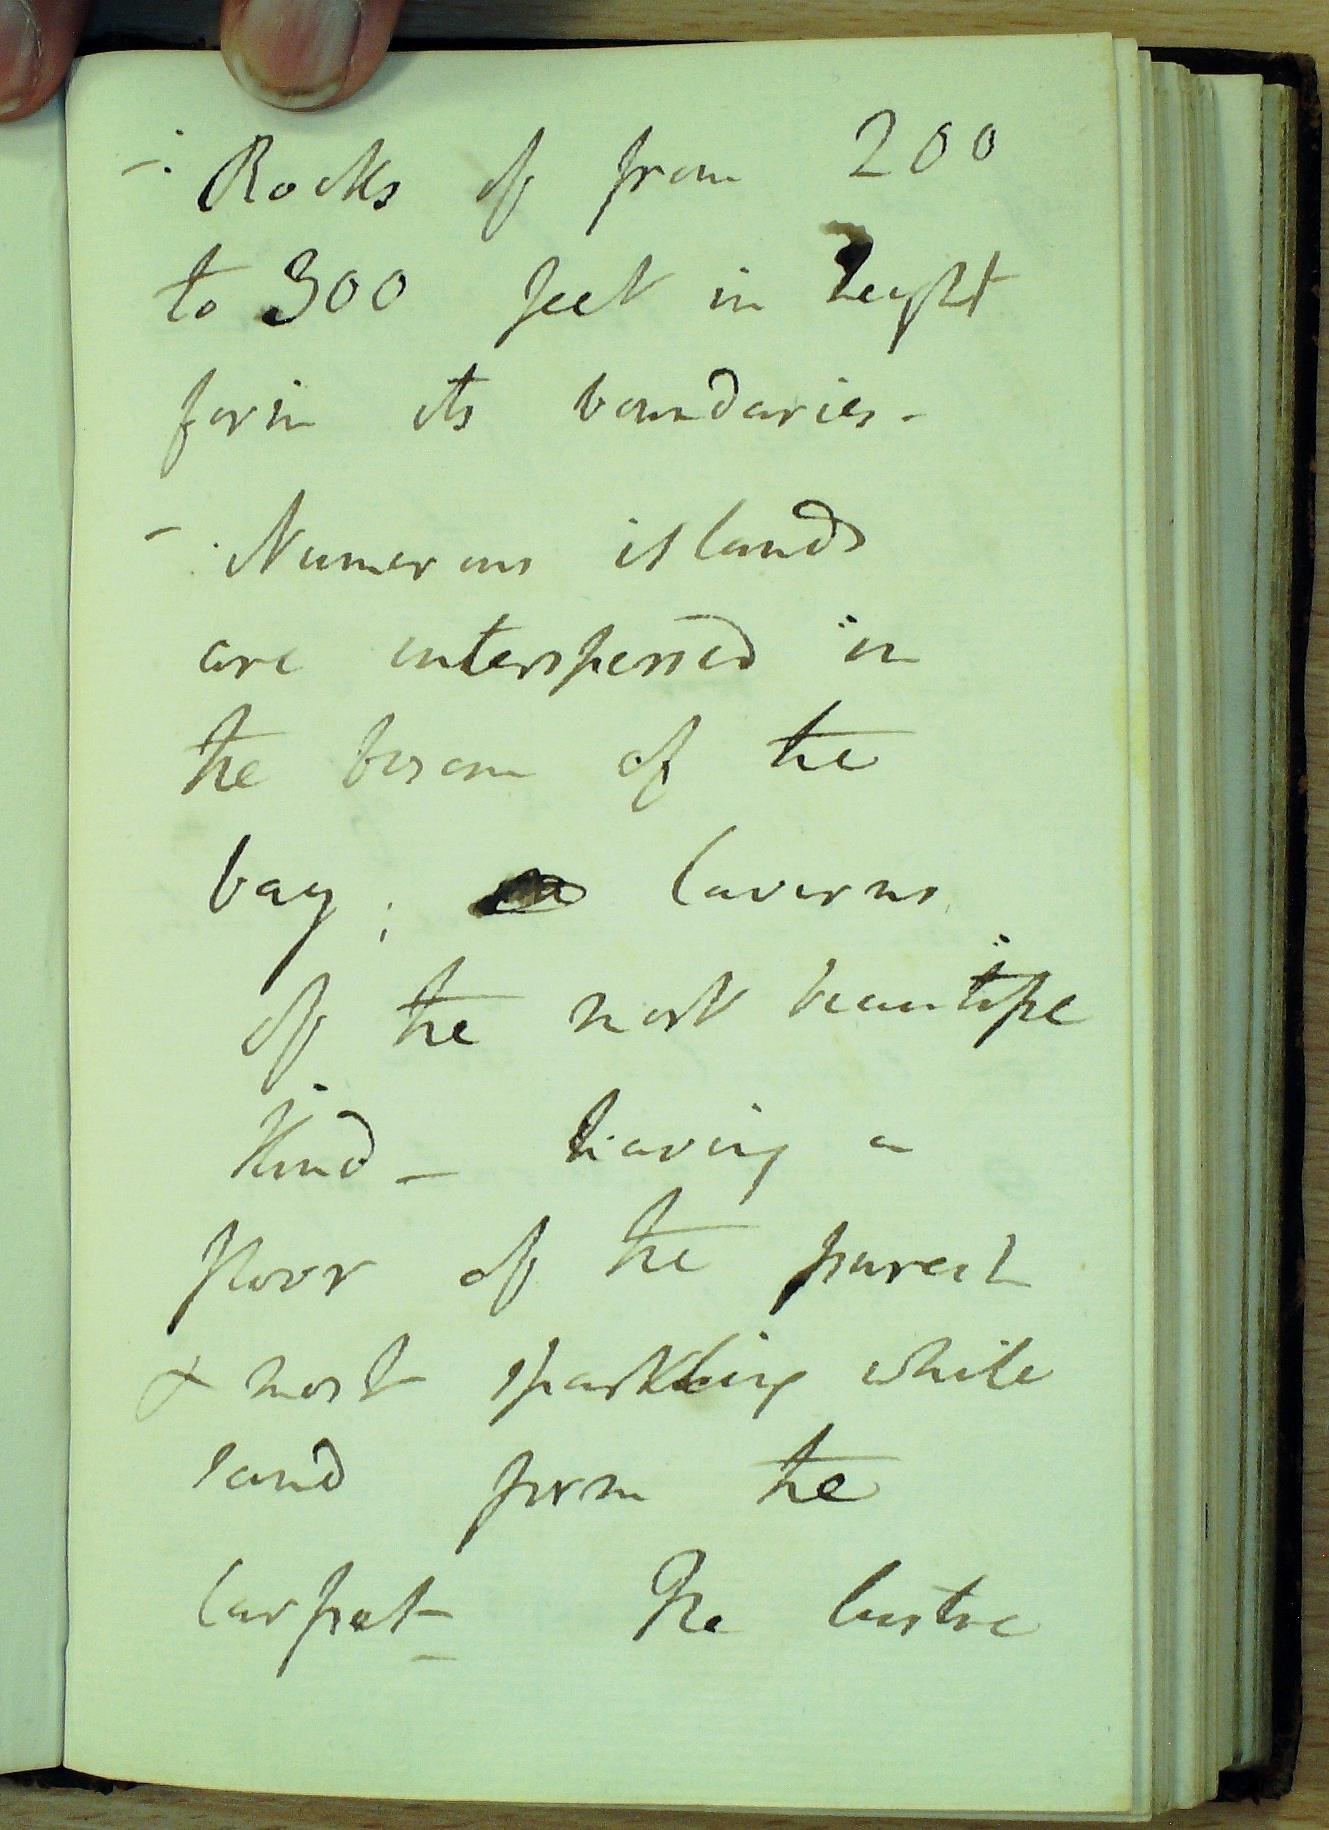 -. Rocks of from 200
to 300 feet in height
form its boundaries -
- Numerous islands
are interspersed in
the bosom of the
bay; Caverns
of the most beautiful
kind - having a
floor of the purest
& most sparkling white
sand form the
Carpet - The lustre